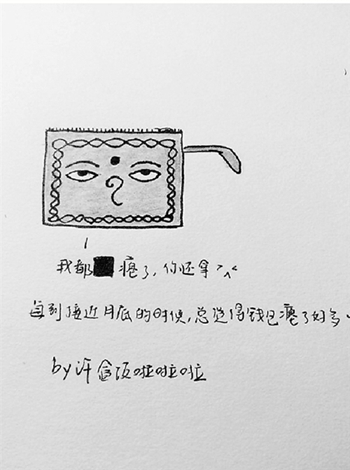 我都瘪了，你还拿 >.<
每到接近月底的时候，总觉得钱包瘪了好多、
by 许啦啦啦